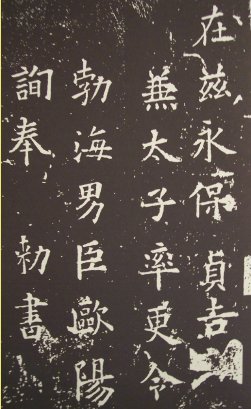 在兹永保貞吉
兼太子率更令
勃海男臣歐陽
詢奉 勑書